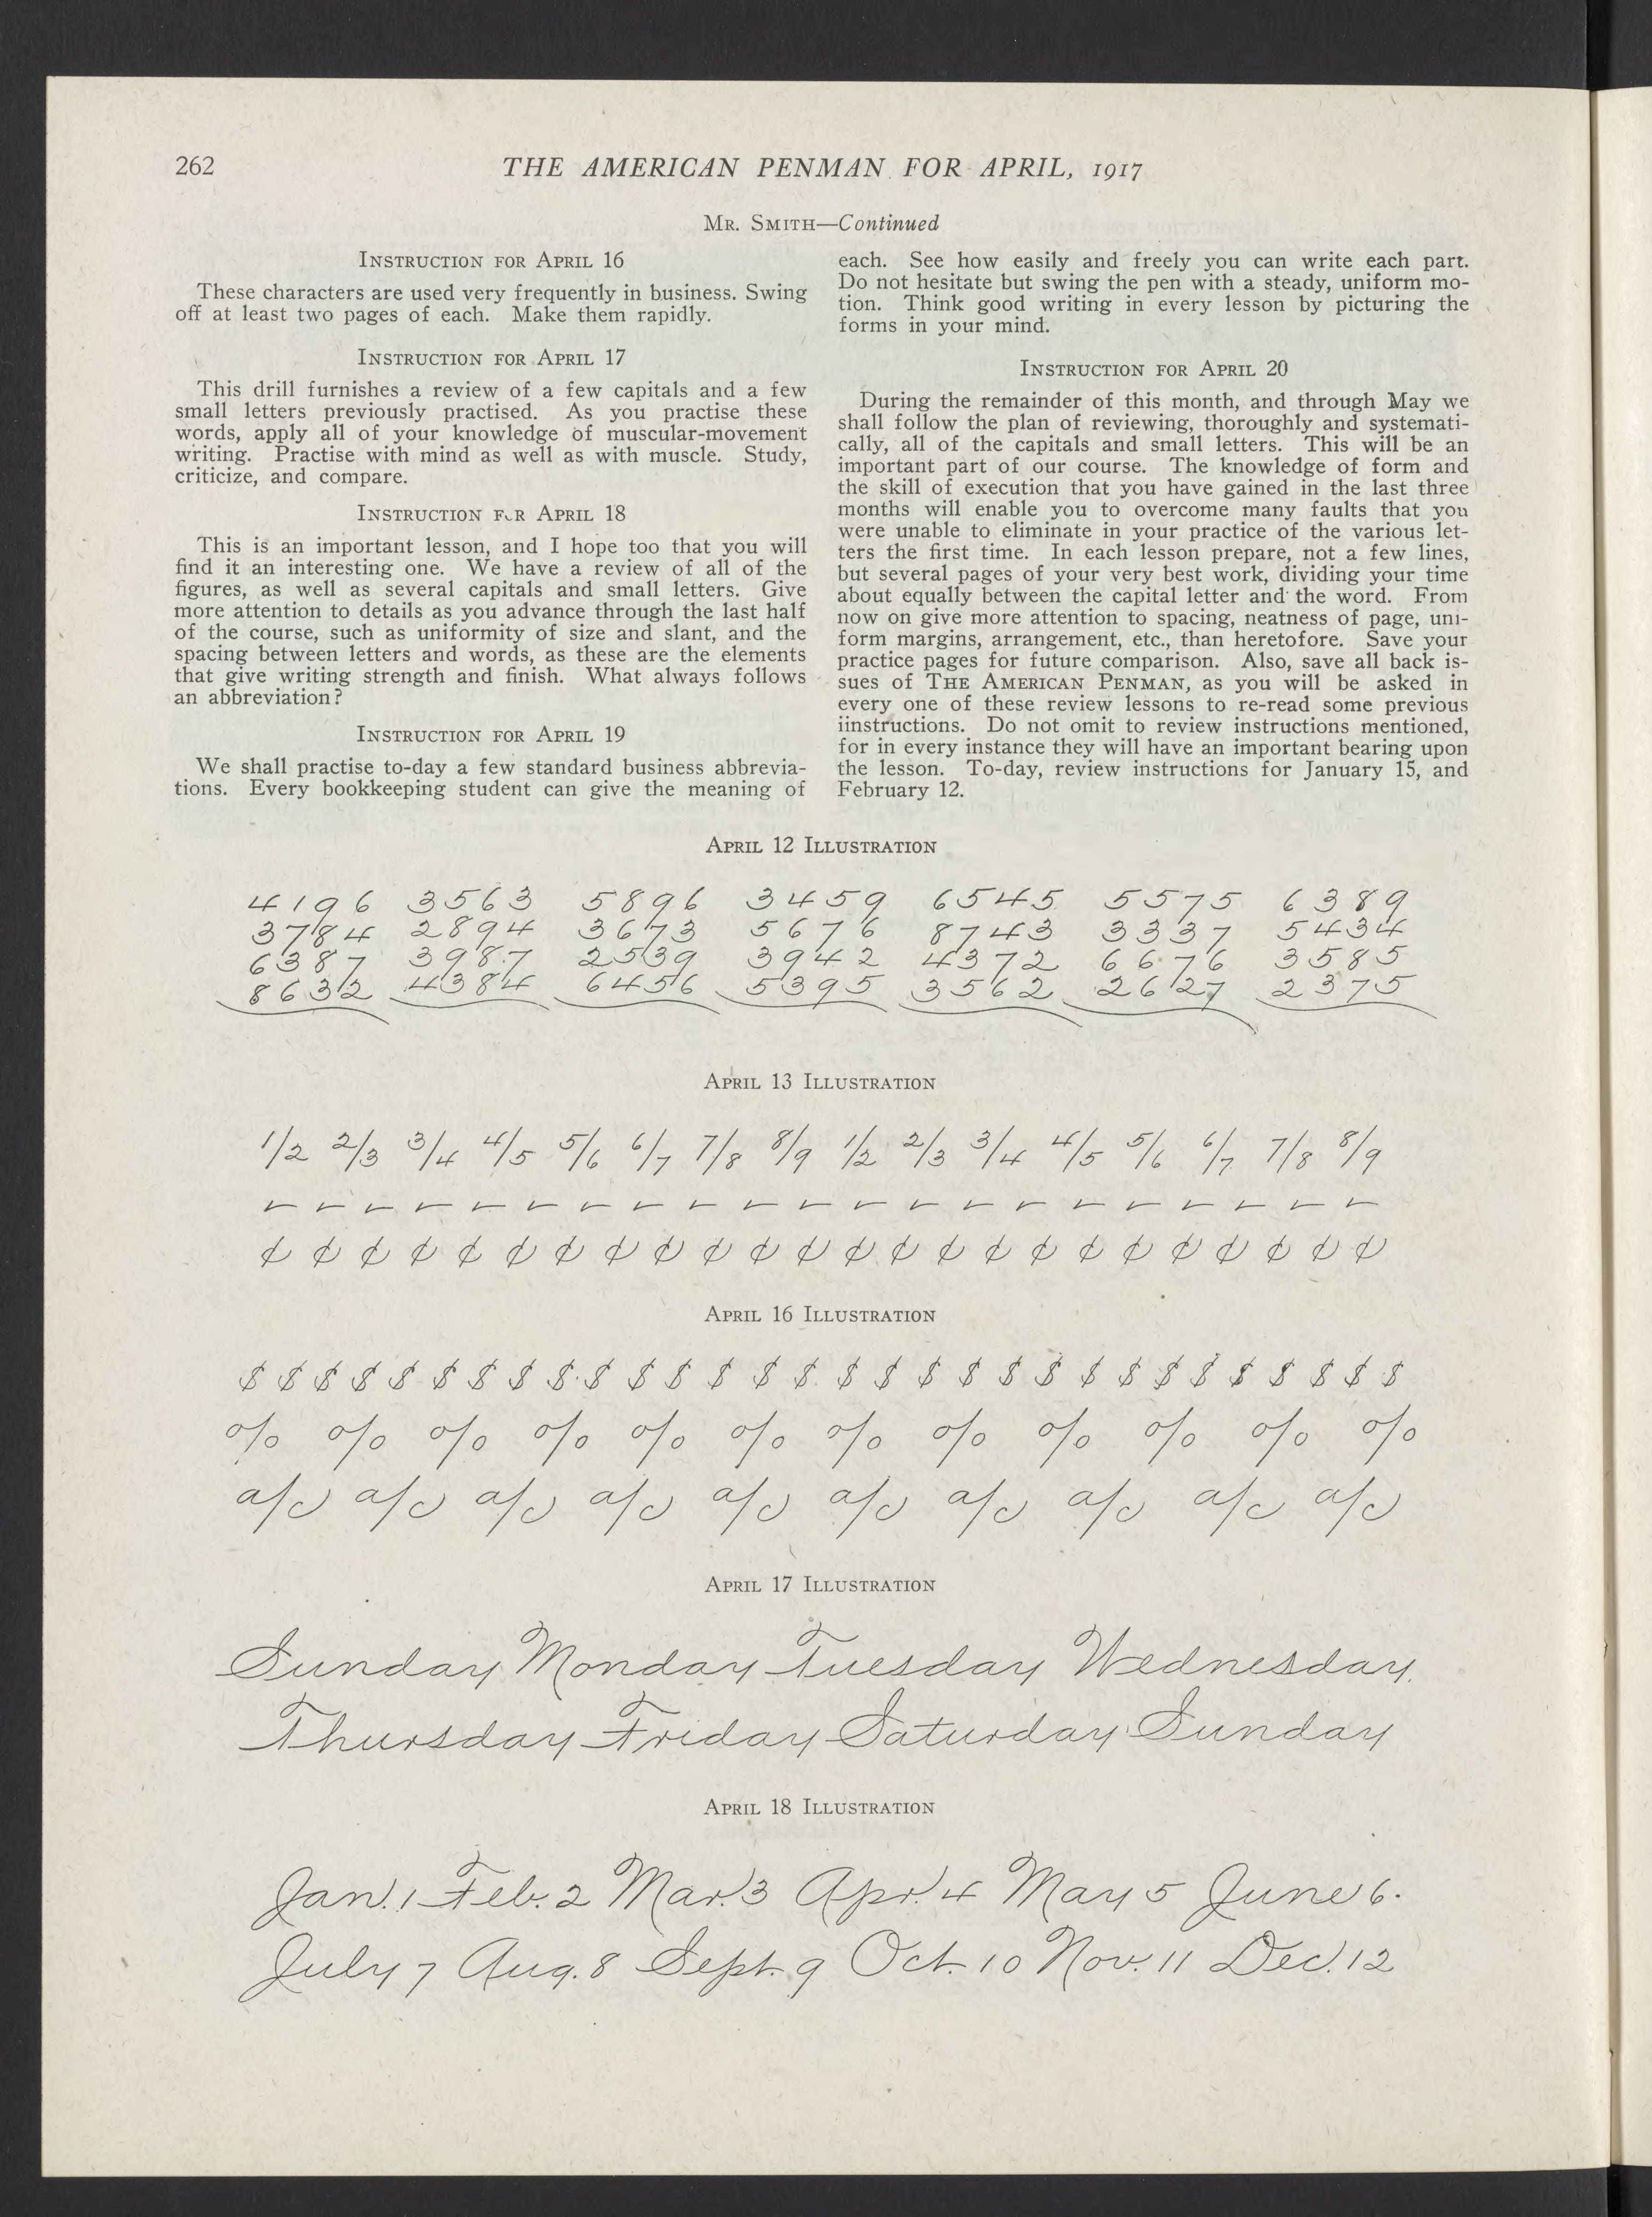 262
THE AMERICAN PENMAN FOR APRIL, 1917
MR. SMITH—Continued
INSTRUCTION FOR APRIL 16
These characters are used very frequently in business. Swing
off at least two pages of each. Make them rapidly.
INSTRUCTION FOR APRIL 17
This drill furnishes a review of a few capitals and a few
small letters previously practised. As you practise these
words, apply all of your knowledge of muscular-movement
writing. Practise with mind as well as with muscle. Study,
criticize, and compare.
INSTRUCTION FOR APRIL 18
This is an important lesson, and I hope too that you will
find it an interesting one. We have a review of all of the
figures, as well as several capitals and small letters. Give
more attention to details as you advance through the last half
of the course, such as uniformity of size and slant, and the
spacing between letters and words, as these are the elements
that give writing strength and finish. What always follows
an abbreviation?
INSTRUCTION FOR APRIL 19
We shall practise to-day a few standard business abbrevia-
tions. Every bookkeeping student can give the meaning of
each. See how easily and freely you can write each part.
Do not hesitate but swing the pen with a steady, uniform mo-
tion. Think good writing in every lesson by picturing the
forms in your mind.
INSTRUCTION FOR APRIL 20
During the remainder of this month, and through May we
shall follow the plan of reviewing, thoroughly and systemati-
cally, all of the capitals and small letters. This will be an
important part of our course. The knowledge of form and
the skill of execution that you have gained in the last three
months will enable you to overcome many faults that you
were unable to eliminate in your practice of the various let-
ters the first time. In each lesson prepare, not a few lines,
but several pages of your very best work, dividing your time
about equally between the capital letter and the word. From
now on give more attention to spacing, neatness of page, uni-
form margins, arrangement, etc., than heretofore. Save your
practice pages for future comparison. Also, save all back is-
sues of THE AMERICAN PENMAN, as you will be asked in
every one of these review lessons to re-read some previous
iinstructions. Do not omit to review instructions mentioned,
for in every instance they will have an important bearing upon
the lesson. To-day, review instructions for January 15, and
February 12.
APRIL 12 ILLUSTRATION
4196 3563 5896 3459 6545 5575 6389
3784 2894 3673 5676 8743 3337 5434
6387 3987 2539 3942 4372 6676 3585
8632 4384 6456 5395 3562 2627 2375
APRIL 13 ILLUSTRATION
1/2 2/3 3/4 4/5 5/6 6/7 7/8 8/9 1/2 2/3 3/4 4/5 5/6 6/7 7/8 8/9
✓ ✓ ✓ ✓ ✓ ✓ ✓ ✓ ✓ ✓ ✓ ✓ ✓ ✓ ✓ ✓ ✓ ✓ ✓ ✓ ✓
¢ ¢ ¢ ¢ ¢ ¢ ¢ ¢ ¢ ¢ ¢ ¢ ¢ ¢ ¢ ¢ ¢ ¢ ¢ ¢ ¢ ¢ ¢ ¢
APRIL 16 ILLUSTRATION
$ $ $ $ $ $ $ $ $ $ $ $ $ $ $ $ $ $ $ $ $ $ $ $ $ $ $ $ $ $
% % % % % % % % % % % %
a/c a/c a/c a/c a/c a/c a/c a/c a/c a/c
APRIL 17 ILLUSTRATION
Sunday Monday Tuesday Wednesday
Thursday Friday Saturday Sunday
APRIL 18 ILLUSTRATION
Jan. 1 Feb. 2 Mar. 3 Apr. 4 May 5 June 6.
July 7 Aug. 8 Sept. 9 Oct. 10 Nov. 11 Dec. 12